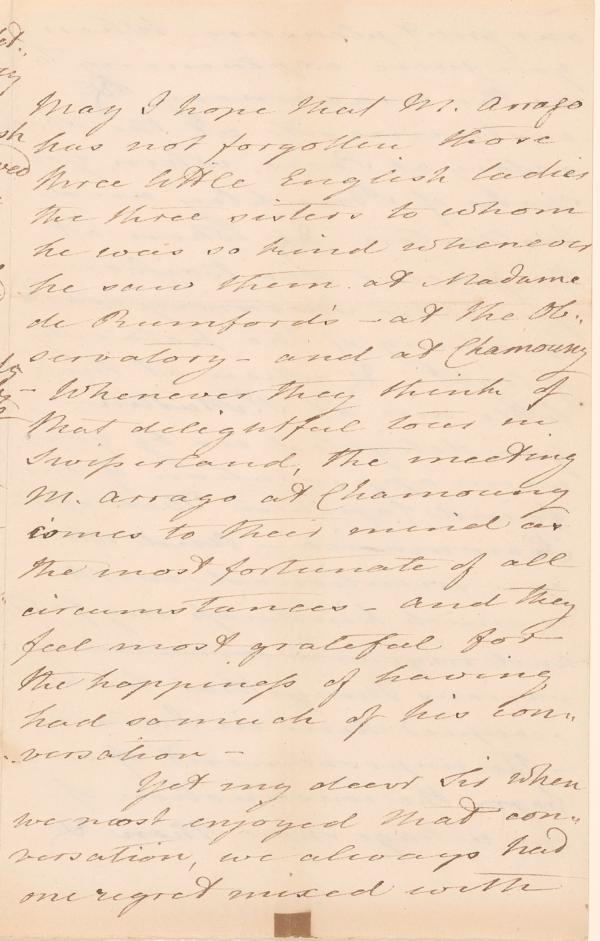 May I hope that M. Arrago
has not forgotten those
three little English ladies
the three sisters to whom
he was so kind whenever
he saw them at Madame
de Rumford's – at the Ob-
servatory – and at Chamouny
– Whenever they think of
that delightful tour in
Swisserland, the meeting
M. Arrago at Chamouny
comes to their mind as
the most fortunate of all
circumstances – and they
feel most grateful for
the happiness of having
had somuch of his con-
versation –
Yet my dear Sir when
we most enjoyed that con-
versation, we always had
one regret mixed with